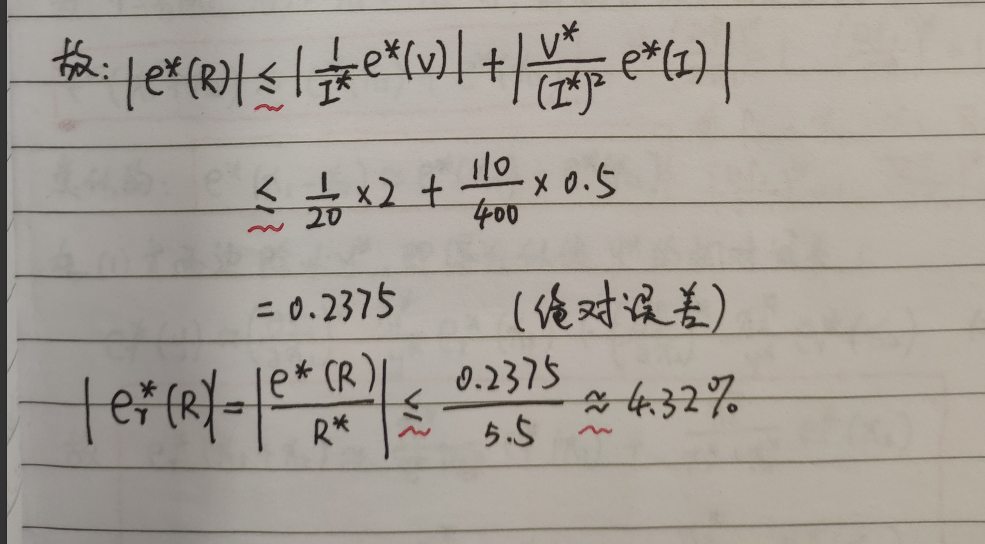 故: |e*(R)| ≤ |1/I* e*(V)| + |V*/(I*)² e*(I)|
≤ 1/20 × 2 + 110/400 × 0.5
= 0.2375 (绝对误差)
|eᵣ*(R)| = |e*(R)/R*| ≤ 0.2375/5.5 ≈ 4.32%